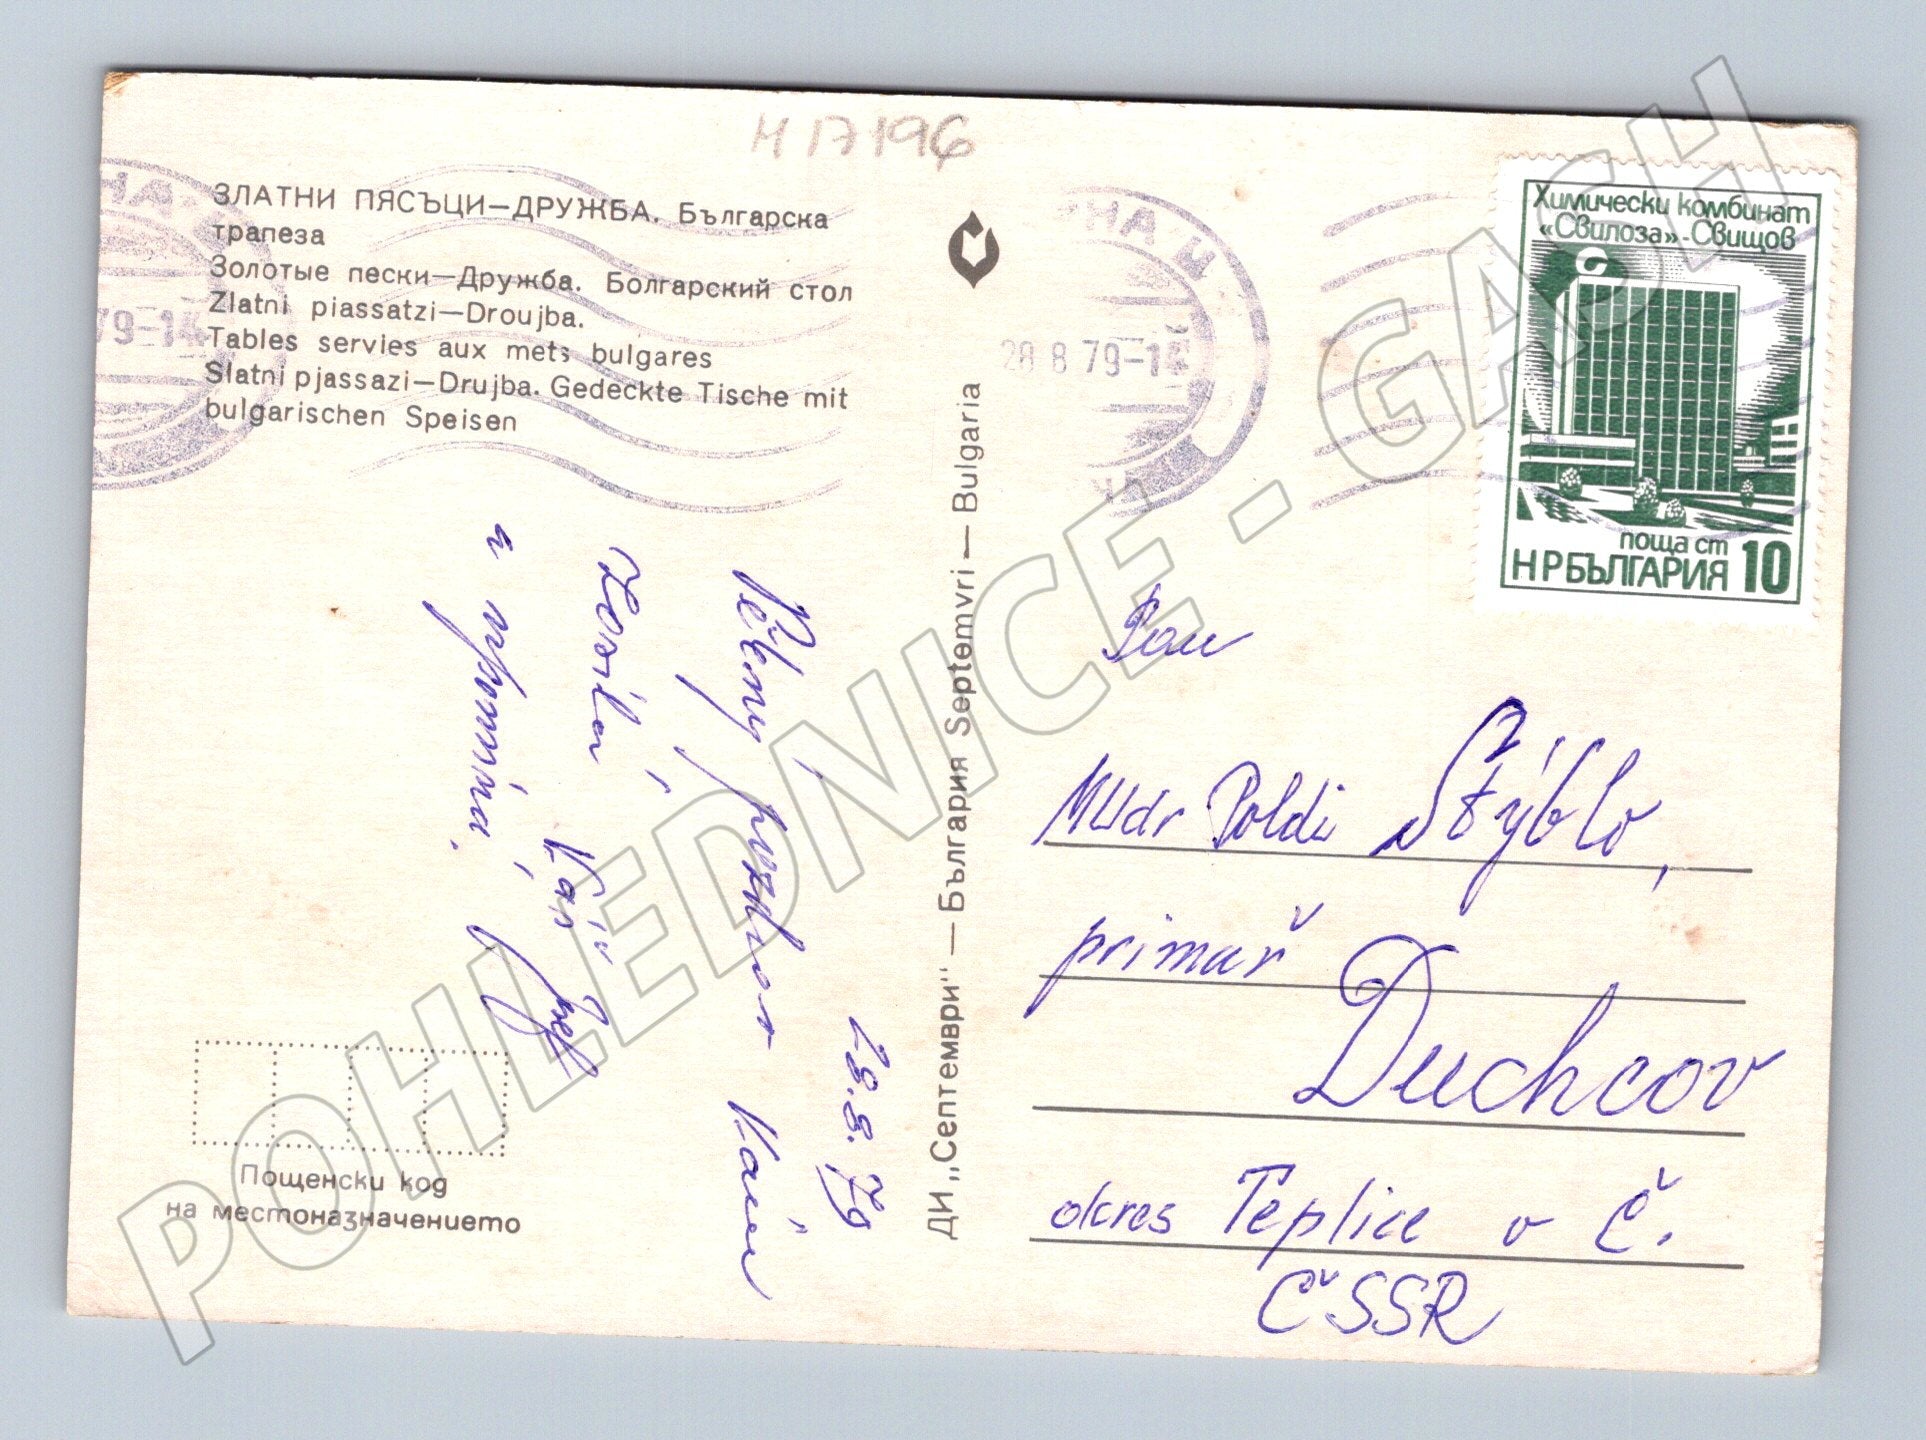 H 17196
ЗЛАТНИ ПЯСЪЦИ—ДРУЖБА. Българска
трапеза
Золотые пески—Дружба. Болгарский стол
Zlatni piassatzi—Droujba.
Tables servies aux mets bulgares
Slatni pjassazi—Drujba. Gedeckte Tische mit
bulgarischen Speisen
НА
79-14
НА Ц
28 8 79-14
Химически комбинат
«Свилоза»-Свищов
поща ст
НР БЪЛГАРИЯ 10
ДИ „Септември“ — България Septemvri — Bulgaria
28.8.79
Pěkný pozdrav
Pan
MUdr Poldi Stýblo,
primář
Duchcov
okres Teplice v Č.
ČSSR
Пощенски код
на местоназначението
POHLEDNICE - GASH